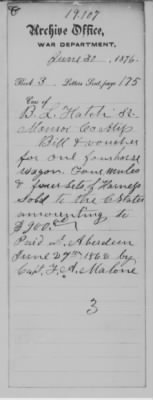 19107
Archive Office,
WAR DEPARTMENT,
June 30, 1876.
Book 3 Letters Sent, page 175
Case of
B. L. Hatch &
Monroe County
Bill & voucher
for one fourhorse
wagon. Four mules
& four sets of Harness
Sold to the C States
amounting to
$900.
Paid at Aberdeen
June 27th 1862 by
Capt. F. A. Malone
3